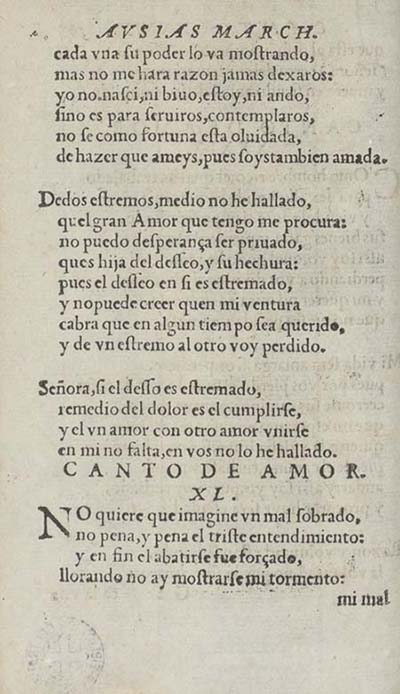 AVSIAS MARCH.
cada vna su poder lo va mostrando,
mas no me hara razon jamas dexaros:
yo no nasci, ni biuo, estoy, ni ando,
sino es para seruiros, contemplaros,
no se como fortuna esta oluidada,
de hazer que ameys, pues soys tambien amada.
Dedos estremos, medio no he hallado,
quel gran Amor que tengo me procura:
no puedo desperança ser priuado,
ques hija del desseo, y su hechura:
pues el desseo en si es estremado,
y no puede creer quen mi ventura
cabra que en algun tiempo sea querido,
y de vn estremo al otro voy perdido.
Señora, si el desseo es estremado,
remedio del dolor es el cumplirse,
y el vn amor con otro amor vnirse
en mi no falta, en vos no lo he hallado.
CANTO DE AMOR.
XL.
NO quiere que imagine vn mal sobrado,
no pena, y pena el triste entendimiento:
y en fin el abatirse fue forçado,
llorando no ay mostrarse mi tormento:
mi mal